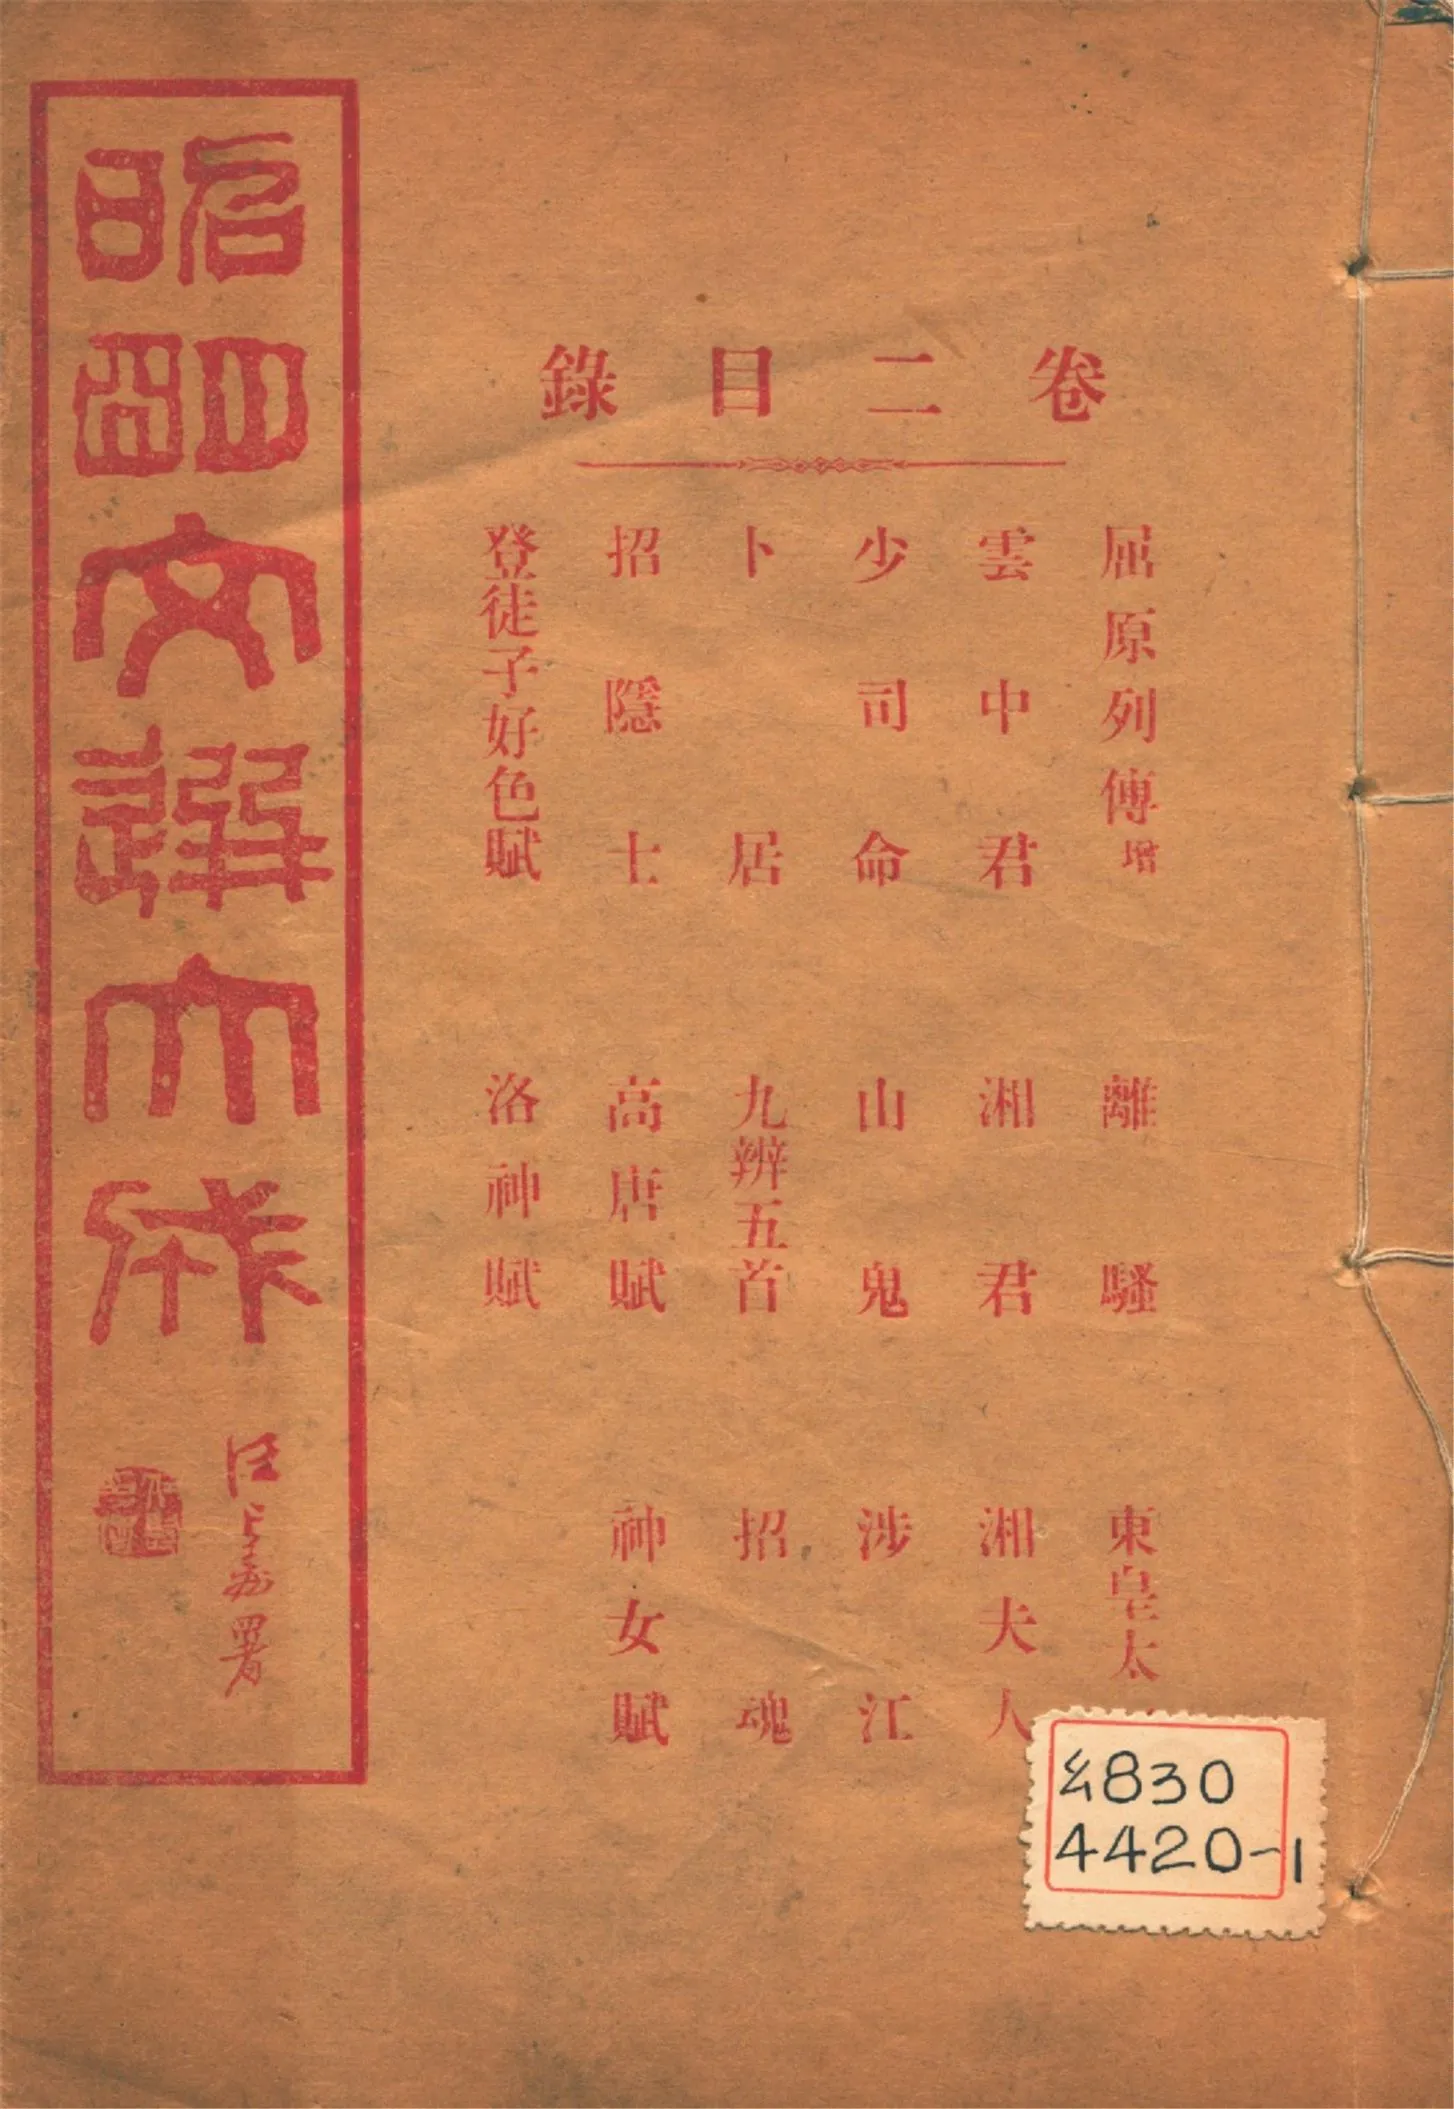 卷二目錄
屈原列傳增
離騷
東皇太
雲中君
湘君
湘夫人
少司命
山鬼
涉江
卜居
九辨五首
招魂
招隱士
高唐賦
神女賦
登徒子好色賦
洛神賦
昭明文選大成
汪
署
幺830
4420-1